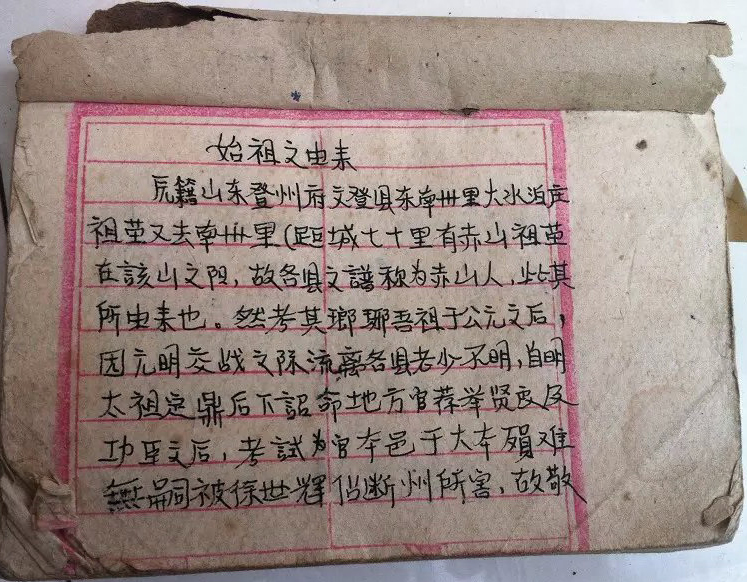 始祖之由来
原籍山东登州府文登县东南卅里大水泊庄
祖茔又去南卅里(距城七十里有赤山祖茔
在該山之阳，故各县之譜称为赤山人，此其
所由来也。然考其瑯琊吾祖于公元之后，
因元明交战之际流离各县老少不明，自明
太祖定鼎后下詔命地方官荐举贤良及
功臣之后，考試为官本邑于大本殞难
無嗣被徐世輝佔断州所害，故敬